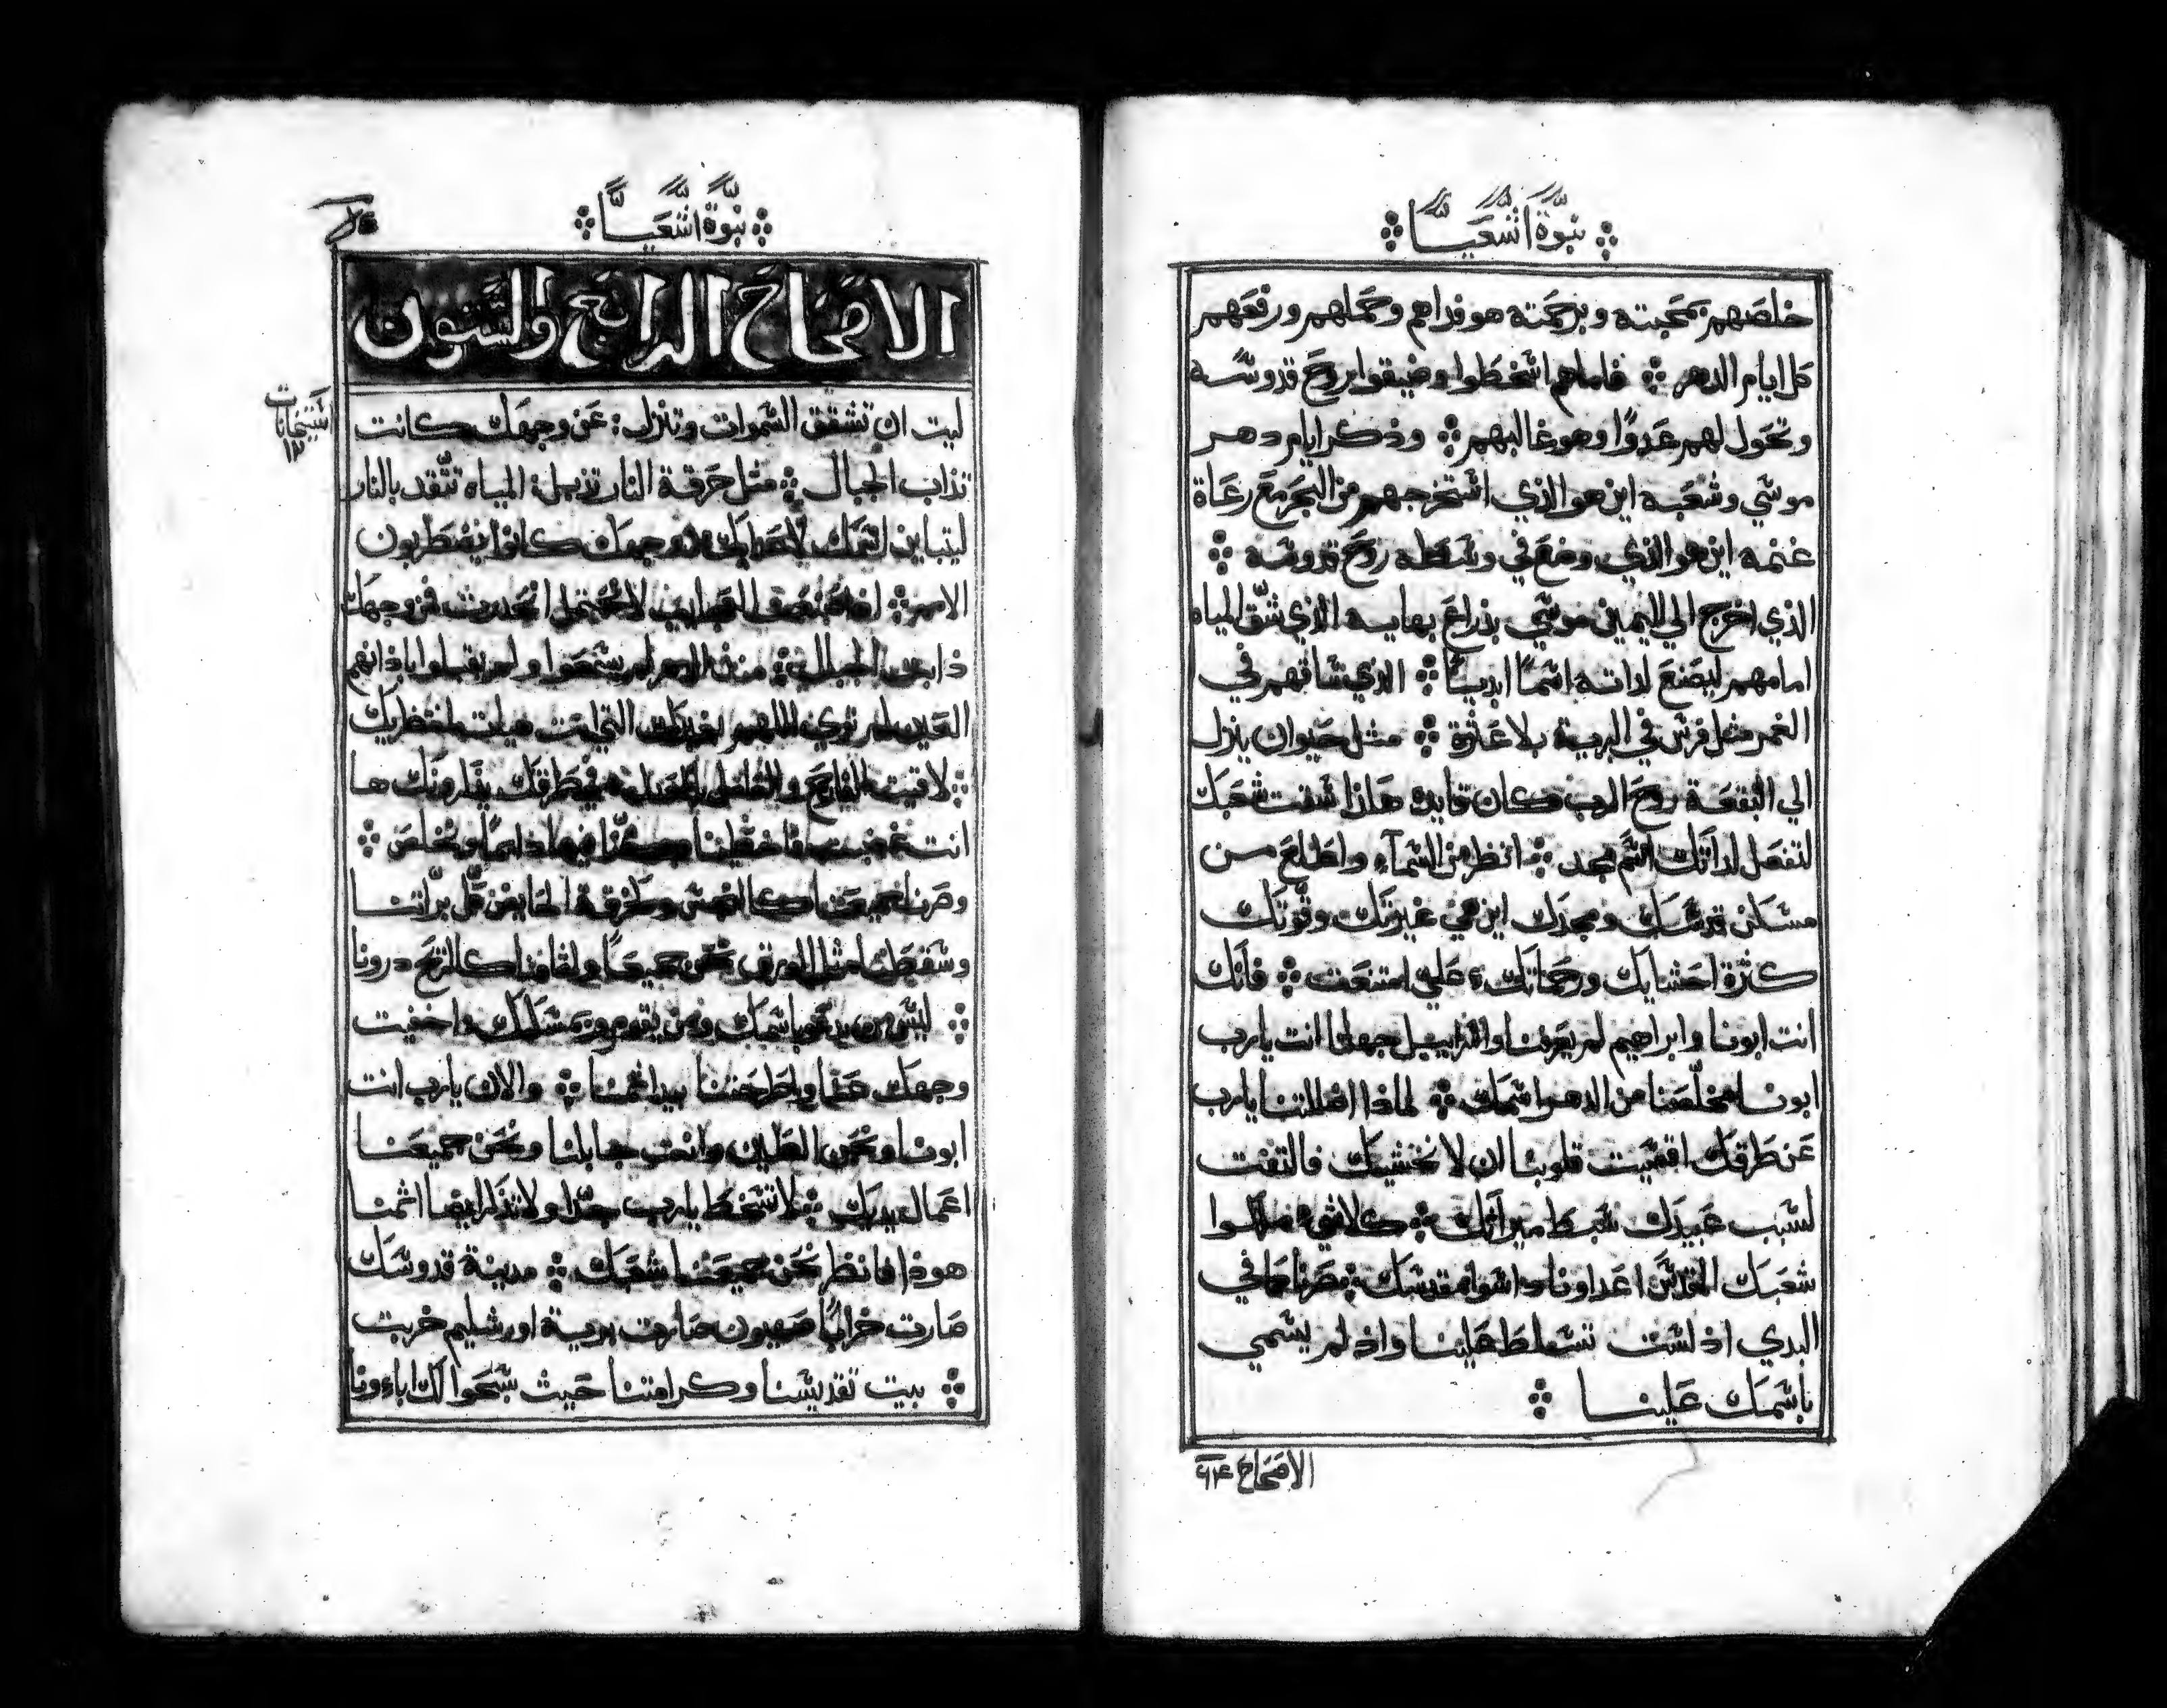 نبوة اشعيا
خلصهم بمحبته وبرحمته هو فداهم وحملهم ورفعهم
كل ايام الدهر فاما هم اسخطوا وضيقوا بروح قدوسه
وتحول لهم عدوًا وهو غالبهم وذكر ايام دهر
موسي وشعبه اين هو الذي استخرجهم من البحر مع رعاة
غنمه اين هو الذي وضع في وسطه روح قدوسه
الذي اخرج الي اليمين موسي بذراع بهايه الذي شق المياه
امامهم ليصنع لذاته اسمًا ابديًا الذي ساقهم في
الغمر مثل فرس في البرية بلا عثرة مثل حيوان ينزل
الي البقعة روح الرب كان قايده هاذا سقت شعبك
لتفعل لذاتك اسم مجد انظر من السمآء واطلع من
مسكن قدسك ومجدك اين هي غيرتك وقوتك
كثرة احشايك ورحماتك علي امتنعت فانك
انت ابونا وابراهيم لم يعرفنا واسراييل جهلنا انت يارب
ابونا مخلصنا من الدهر اسمك لماذا اضللتنا يارب
عن طرقك اقسيت قلوبنا ان لا نخشيك فالتفت
لسبب عبيدك سبط ميراتك كلاشي ملكوا
شعبك المقدس اعداونا داسوا مقدسك صرنا كما في
البدي اذ لست تتسلط علينا واذ لم يسمي
باسمك علينا
الاصحاح ٦٤
نبوة اشعيا
الاصحاح الرابع والستون
ليت ان تشقق السموات وتنزل عن وجهك كانت
تذاب الجبال مثل حرقة النار تذبل المياه تتقد بالنار
ليتباين اسمك لاعدايك من وجهك كانوا يضطربون
الامم اذا تصنع العجايب لا نحتمل انحدرت فمن وجهك
ذابت الجبال منذ الدهر لم يسمعوا ولم يقبلوا باذانهم
العين لم تري اللهم بغيرك التي اعددت لمنتظريك
لاقيت الفارح والفاعل العدل في طرقك يذكرونك ها
انت غضبت فاخطينا كنا فيها دايمًا ونخلص
وصرنا جميعنا كالنجس وكخرقة الحايض كل براتنا
وسقطنا مثل الورق نحن جميعًا واثامنا كالريح درونا
ليس من يدعو باسمك ومن يقوم ويمسكك واخفيت
وجهك عنا واطرحتنا بيد اثمنا والان يارب انت
ابونا ونحن الطين وانت جابلنا ونحن جميعنا
اعمال يديك لا تسخط يارب جدًا ولا تذكر ايضا اثمنا
هوذا فانظر نحن جميعنا شعبك مدينة قدوسك
صارت خرابًا صهيون صارت برية اورشليم خربت
بيت تقديسنا وكرامتنا حيث سبحوا لك اباءونا